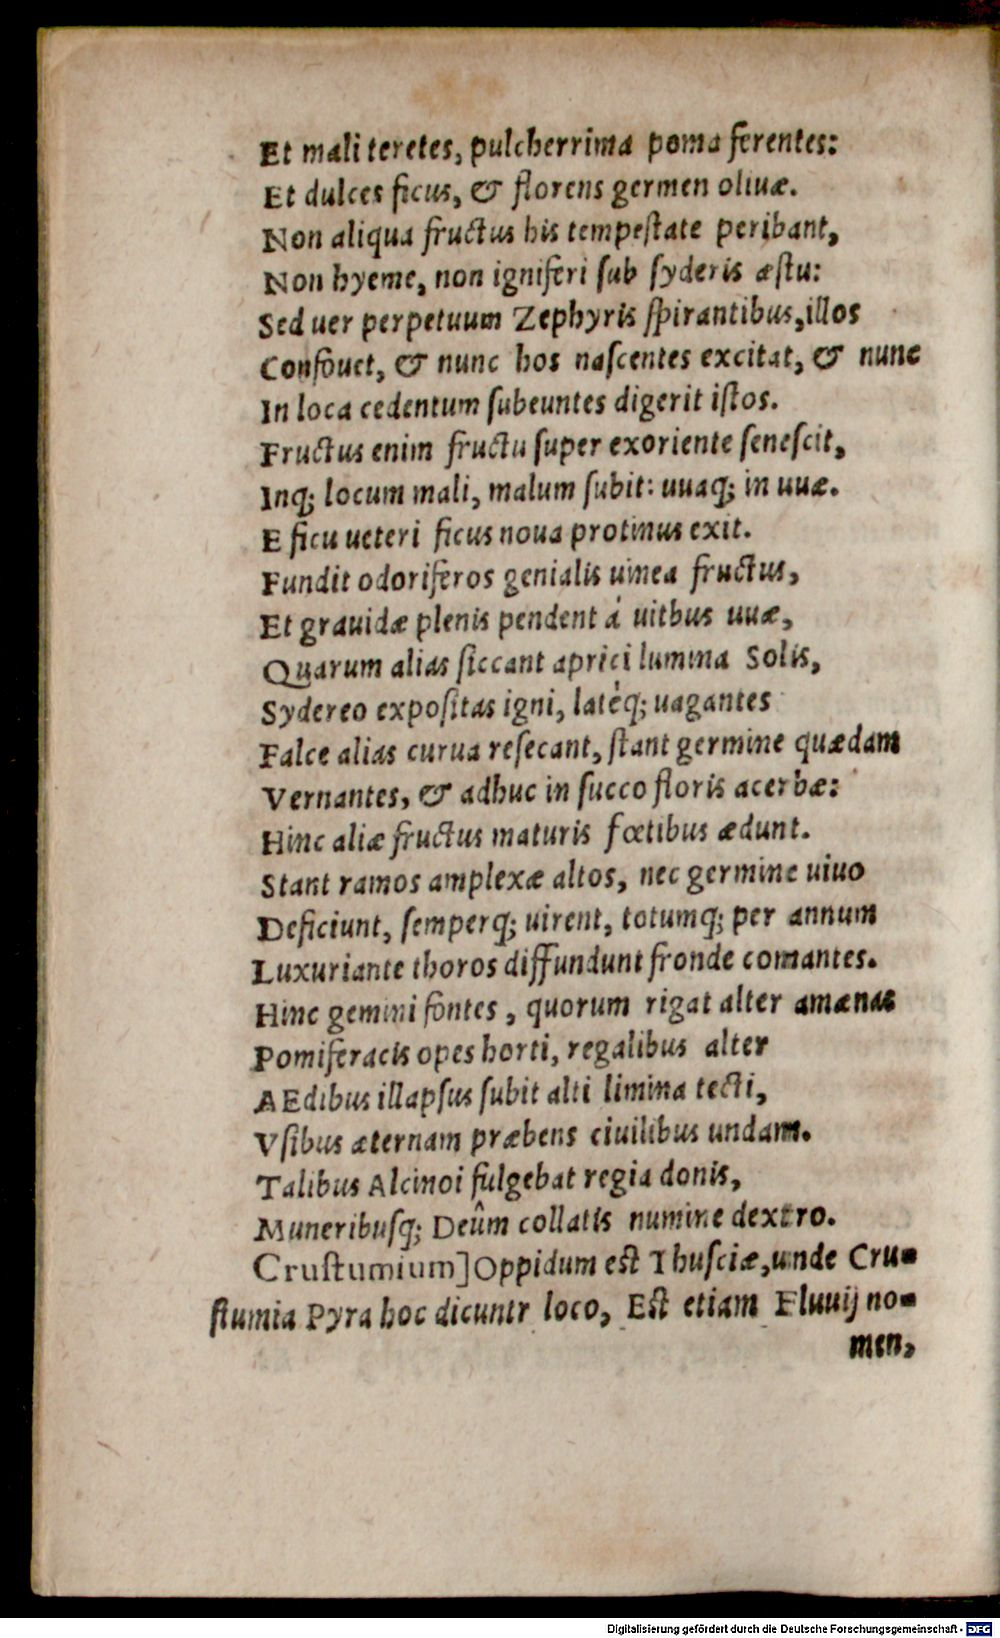 Et mali teretes, pulcherrima poma ferentes:
Et dulces ficus, & florens germen oliuæ.
Non aliqua fructus his tempeſtate peribant,
Non hyeme, non igniferi ſub ſyderis æſtu:
Sed uer perpetuum Zephyris ſpirantibus, illos
Confouet, & nunc hos naſcentes excitat, & nunc
In loca cedentum ſubeuntes digerit iſtos.
Fructus enim fructu ſuper exoriente ſeneſcit,
Inq; locum mali, malum ſubit: uuaq; in uuæ.
E ficu ueteri ficus noua protinus exit.
Fundit odoriferos genialis uinea fructus,
Et grauidæ plenis pendent á uitbus uuæ,
Quarum alias ſiccant aprici lumina Solis,
Sydereo expoſitas igni, latéq; uagantes
Falce alias curua reſecant, ſtant germine quædam
Vernantes, & adhuc in ſucco floris acerbæ:
Hinc aliæ fructus maturis fœtibus ædunt.
Stant ramos amplexæ altos, nec germine uiuo
Deficiunt, ſemperq; uirent, totumq; per annum
Luxuriante thoros diffundunt fronde comantes.
Hinc gemini fontes, quorum rigat alter amænas
Pomiferacis opes horti, regalibus alter
AEdibus illapſus ſubit alti limina tecti,
Vſibus æternam præbens ciuilibus undam.
Talibus Alcinoi fulgebat regia donis,
Muneribuſq; Deûm collatis numine dextro.
Cruſtumium] Oppidum eſt Thuſciæ, unde Cru-
ſtumia Pyra hoc dicuntr loco, Eſt etiam Fluuij no-
men,
Digitalisierung gefördert durch die Deutsche Forschungsgemeinschaft - DFG